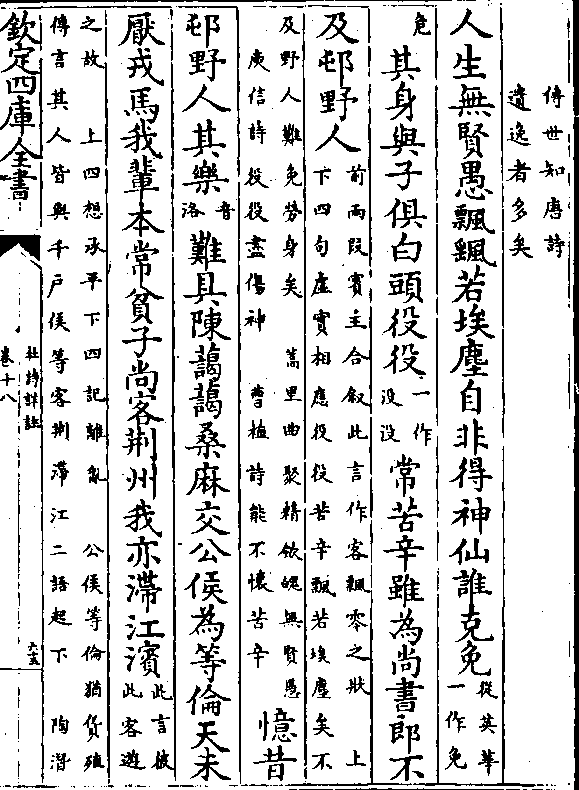 傳世知唐詩
遺逸者多矣
人生無賢愚飄颻若埃塵自非得神仙誰克免
從英華
一作免
危
其身與子俱白頭役役
一作
没没
常苦辛雖為尚書郎不
及邨野人
前兩段賓主合叙此言作客飄零之狀 上
下四句虛實相應役役苦辛飄若埃塵矣不
及野人難免勞身矣 蒿里曲聚精欲魄無賢愚
庾信詩役役盡傷神 曹植詩能不懷苦辛
憶昔
邨野人其樂
音
洛
難具陳藹藹桑麻交公侯為等倫天未
厭戎馬我輩本常貧子尚客荆州我亦滯江濱
此言彼
此客遊
之故 上四想承平下四記離亂 公侯等倫猶貨殖
傳言其人皆與千戶侯等客荆滯江二語起下 陶潛
欽定四庫全書
杜詩詳註
卷十八
六十五